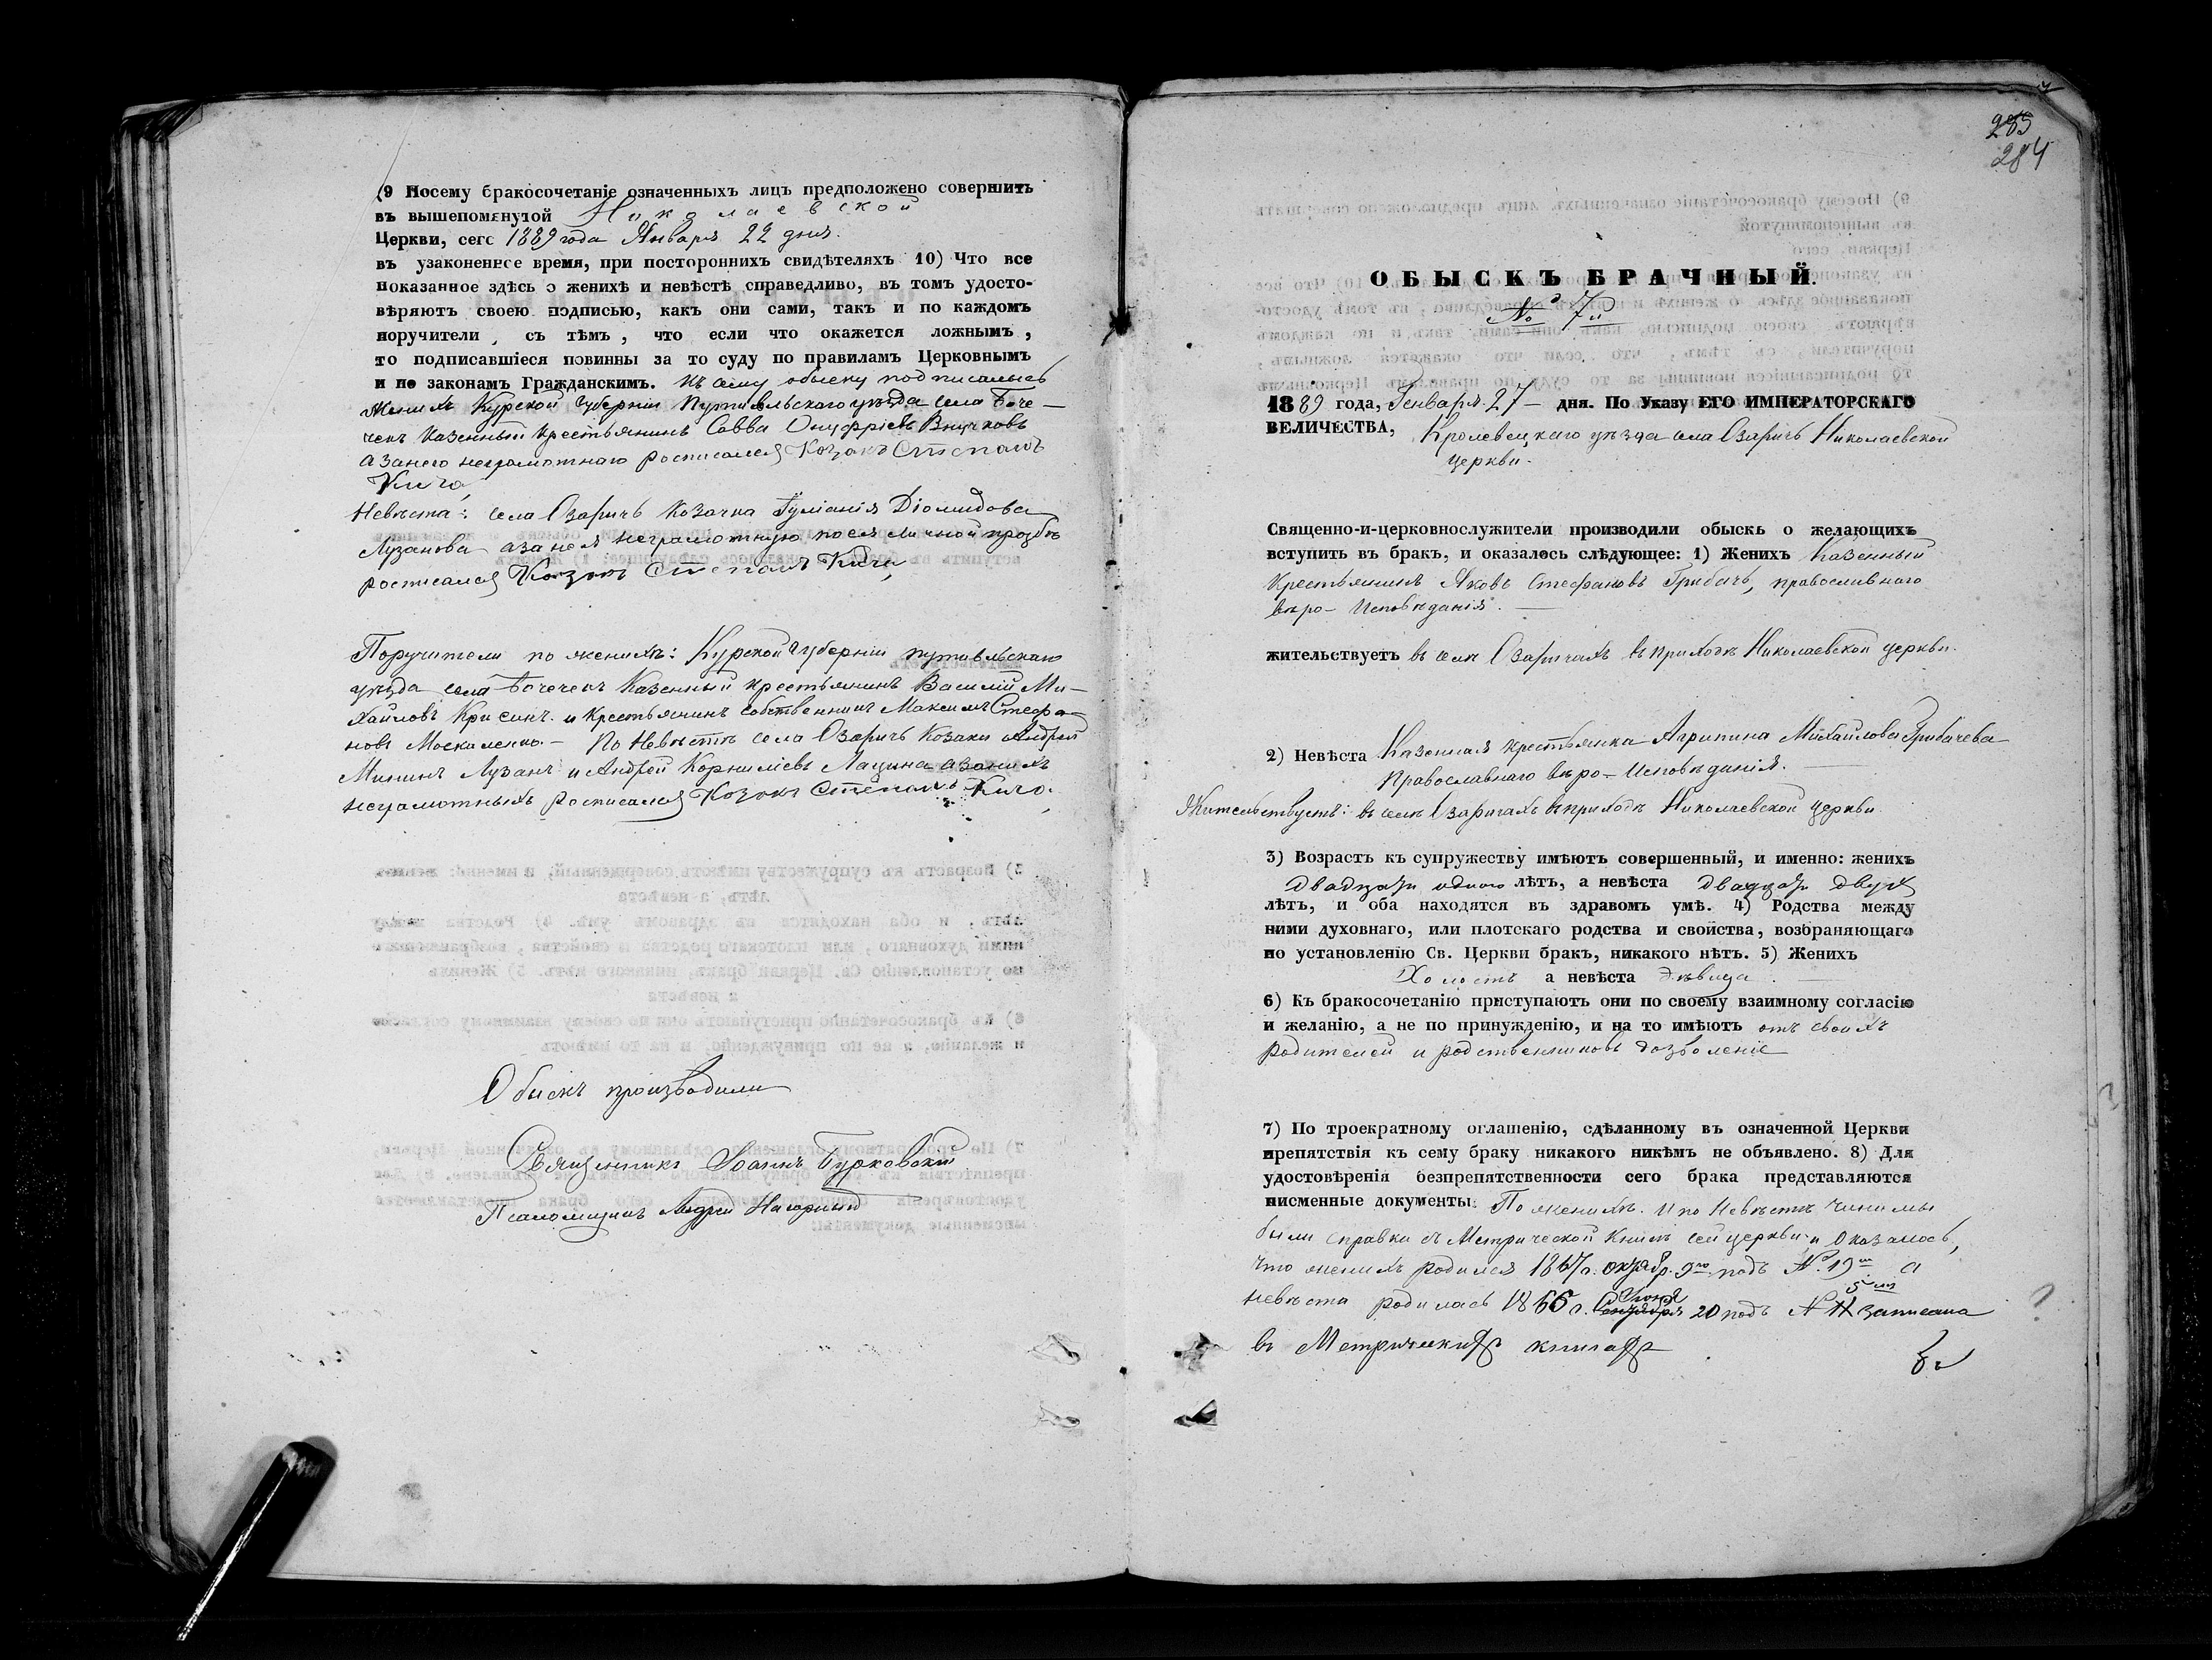 (9 Посему бракосочетаніе означенныхъ лицъ предположено совершить
въ вышепомянутой Николаевской
Церкви, сего 1889 года Января 22 дня.
въ узаконенное время, при постороннихъ свидѣтеляхъ 10) Что все
показанное здѣсь о женихѣ и невѣстѣ справедливо, въ томъ удосто-
вѣряютъ своею подписью, какъ они сами, такъ и по каждомъ
поручители, съ тѣмъ, что если что окажется ложнымъ,
то подписавшіеся повинны за то суду по правиламъ Церковнымъ
и по законамъ Гражданскимъ. Къ сему обыску подписались
Женихъ Курской Губерніи Путивльскаго уѣзда села Боче-
чекъ Казенный Крестьянинъ Савва Онуфріевъ
а за него неграмотнаго росписался Козакъ Степанъ
Кича
Невѣста: села Озаричъ Козачка Іуліанія Діомидова
Лузанова а за нея неграмотную после личной прозбѣ
росписался Козакъ Степанъ Кича
Поручители по женихѣ: Курской Губерніи путивльскаго
уѣзда села Бочечекъ Казенный крестьянинъ Василій Ми-
хайловъ и Крестьянинъ собственникъ Максимъ Стефа-
новъ Москаленко. – По Невѣстѣ села Озаричъ Козаки Андрей
Мининъ Лузанъ и Андрей Корниліевъ Лацина а за нихъ
неграмотныхъ росписался Козакъ Степанъ Кича.
Обыскъ производили
Священникъ Іоаннъ Бурковскій
Псаломщикъ Андрей Нагорный
285
284
ОБЫСКЪ БРАЧНЫЙ.
№ 7й
1889 года, Генваря 27 – дня. По Указу ЕГО ИМПЕРАТОРСКАГО
ВЕЛИЧЕСТВА, Кролевецкаго уѣзда села Озаричъ Николаевской
церкви.
Священно-и-церковнослужители производили обыскъ о желающихъ
вступить въ бракъ, и оказалось слѣдующее: 1) Женихъ Казенный
Крестьянинъ Яковъ Стефановъ Грибачъ, православнаго
вѣро-Исповѣданія.
жительствуетъ въ селѣ Озаричахъ въ приходѣ Николаевской церкви.
2) Невѣста Казенная крестьянка Агрипина Михайлова Грибачева
Православнаго вѣро-Исповѣданія.
Жительствуетъ: въ селѣ Озаричахъ въ приходѣ Николаевской церкви
3) Возрастъ къ супружеству имѣютъ совершенный, и именно: женихъ
двадцати одного лѣтъ, а невѣста двадцати двухъ
лѣтъ, и оба находятся въ здравомъ умѣ. 4) Родства между
ними духовнаго, или плотскаго родства и свойства, возбраняющаго
по установленію Св. Церкви бракъ, никакого нѣтъ. 5) Женихъ
Холостъ а невѣста дѣвица.
6) Къ бракосочетанію приступаютъ они по своему взаимному согласію
и желанію, а не по принужденію, и на то имѣютъ отъ своихъ
родителей и родственниковъ дозволеніе
7) По троекратному оглашенію, сдѣланному въ означенной Церкви
препятствія къ сему браку никакого никѣмъ не объявлено. 8) Для
удостовѣренія безпрепятственности сего брака представляются
писменные документы: По женихѣ и по Невѣстѣ чинимы
были справки въ Метрической Книгѣ сей церкви и Оказалось,
что женихъ родился 1867 г. октябр. 9го подъ №. 19м а
невѣста родилась 1866 г. Іюня 20 подъ № 5м записана
въ Метрическихъ книгахъ